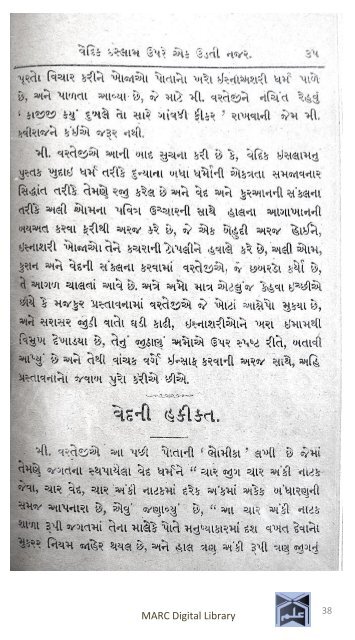 વેદિક ઇસ્લામ ઉપર એક ઉડતી નજર. ૩૫
પૂરતો વિચાર કરીને ખોજાઓ પોતાનો ખરો ઇસ્નાઅશરી ધર્મ પાળે
છે, અને પાળતા આવ્યા છે, જે માટે મી. વરતેજીને નચિંત રેહવું
' કાજીજી ક્યું દુબલે તો સારે ગાંવકી ફીકર ' રાખવાની જેમ મી.
કવીરાજને કંઈએ જરૂર નથી.
મી. વરતેજીએ આની બાદ સુચના કરી છે કે, વેદિક ઇસલામનું
પુસ્તક ખુદાઇ ધર્મ તરીકે દુન્યાના બધા ધર્મોની એકત્રતા સમજાવનાર
સિદ્ધાંત તરીકે તેમણે રજુ કરેલ છે અને વેદ અને કુરઆનની સંકલના
તરીકે અલી ઓમના પવિત્ર ઉચ્ચારની સાથે હાલના આગાખાનની
બયઅત કરવા ફરીથી અરજ કરે છે, જે એક બેહુદી અરજ હોઈને,
ઇસ્નાશરી ખોજાઓ તેને કચરાની ટોપલીને હવાલે કરે છે, અલી ઓમ,
કુરાન અને વેદની સંકલના કરવામાં વરતેજીએ, જે છબરડો કર્યો છે,
તે આગળ ચાલતાં આવે છે. અત્રે અમો માત્ર એટલુંજ કેહવા ઇચ્છીએ
છીએ કે મજકુર પ્રસ્તાવનામાં વરતેજીએ જે ખોટાં આક્ષેપો મુક્યા છે,
અને સરાસર જુઠી વાતો ઘડી કાઢી, ઇસ્નાશરીઓને ખરા ઇમામથી
વિમુખ દેખાડયા છે, તેનું જુઠાણું અમોએ ઉપર સ્પષ્ટ રીતે, બતાવી
આપ્યું છે અને તેથી વાંચક વર્ગે ઇન્સાફ કરવાની અરજ સાથે, અહિં
પ્રસ્તાવનાનો જવાબ પુરો કરીએ છીએ.
વેદની હકીકત.
મી. વરતેજીએ આ પછી પોતાની ' ભોમીકા ' લખી છે જેમાં
તેમણે જગતના સ્થપાયેલા વેદ ધર્મને " ચાર જુગ ચાર અંકી નાટક
જેવા, ચાર વેદ, ચાર અંકી નાટકમાં દરેક અંકમાં અકેક બંધારણની
સમજ આપનારા છે, એવું જણાવ્યું છે, " આ ચાર અંકી નાટક
શાળા રૂપી જગતમાં તેના માલેકે પોતે મનુષ્યાકારમાં દશ વખત દેવાનો
મુકરર નિયમ જાહેર થયલ છે, અને હાલ ત્રણ અંકી રૂપી ત્રણ જુગનું
MARC Digital Library
علم
38